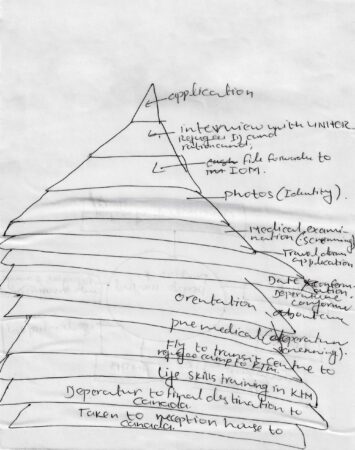 application
interview with UNHCR
Refugee ID and
rationcard,
file forwards to
IOM.
photos (Identity).
Medical exami
nation (screening)
Travel docu
application
Date conform
ation,
Deperature
conforme
orentation
pre medical (deperature
screening).
Fly to transit centre to
refugee camp to KTM.
life skills training in KTM
Deperatur to final destination to
Canada.
Taken to reception house to
Canada.